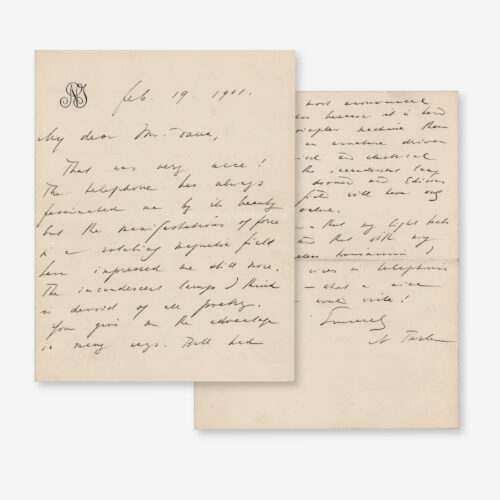 NT
Feb. 19. 1901.
My dear Mr.
That was very nice!
The telephone has always
fascinated me by its beauty
but the manifestations of force
in a rotating magnetic field
have impressed me still more.
The incandescent lamps I think
is devoid of all poetry.
You give me the advantage
in many ways. Bell had
most
because it is a hard
simpler machine than
an armature driven
and electrical
the incandescent lamp
doomed and Edison's
will have only
value.
that my light bulb
and that with my
I
in telephonic
what a nice
world
Sincerely
N Tesla